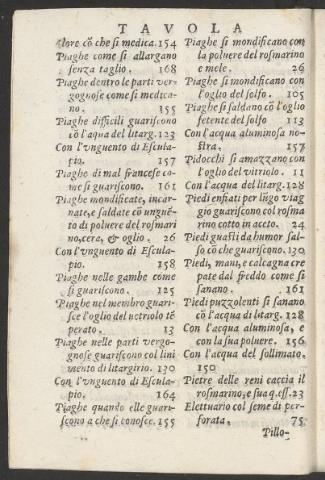 TAVOLA
olore cō che si medica. 154
Piaghe come si allargano
senza taglio. 168
Piaghe dentro le parti ver-
gognose come si medica-
no. 155
Piaghe difficili guariscono
cō l'aqua del litarg. 123
Con l'vnguento di Escula-
pio. 157
Piaghe di mal francese co-
me si guariscono. 161
Piaghe mondificate, incar-
nate, e saldate cō unguē-
to di poluere del rosmari
no, cera, & oglio. 26
Con l'vnguento di Escula-
pio. 158
Piaghe nelle gambe come
si guariscono. 125
Piaghe nel membro guari-
sce l'oglio del uetriolo tē
perato. 13
Piaghe nelle parti vergo-
gnose guariscono col lini
mento di litargirio. 130
Con l'vnguento di Escula-
pio. 164
Piaghe quando elle guari-
scono a che si conosce. 155
Piaghe si mondificano con
la poluere del rosmarino
e mele. 26
Piaghe si mondificano con
l'oglio del solfo. 105
Piaghe si saldano cō l'oglio
fetente del solfo 113
Con l'acqua aluminosa no-
stra. 157
Pidocchi si amazzano con
l'oglio del vitriolo. 11
Con l'acqua del litarg. 128
Piedi enfiati per lūgo viag
gio guariscono col rosma
rino cotto in aceto. 24
Piedi guasti da humor sal-
so cō che guariscono. 130
Piedi, mani, e calcagna cre
pate dal freddo come si
sanano. 161
Piedi puzzolenti si sanano
cō l'acqua di litarg. 128
Con l'acqua aluminosa, e
con la sua poluere. 156
Con l'acqua del sollimato.
150
Pietre delle reni caccia il
rosmarino, e sua q. ess. 23
Elettuario col seme di per-
forata. 75
Pillo-